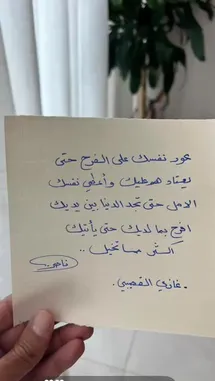 عود نفسك على الفرح حتى
يعتاد هو عليك وأعطي نفسك
الأمل حتى تجد الدنيا بين يديك
افرح بما لديك حتى يأتيك
أكثر مما تخيل ..
ناصر
غازي القصيبي .